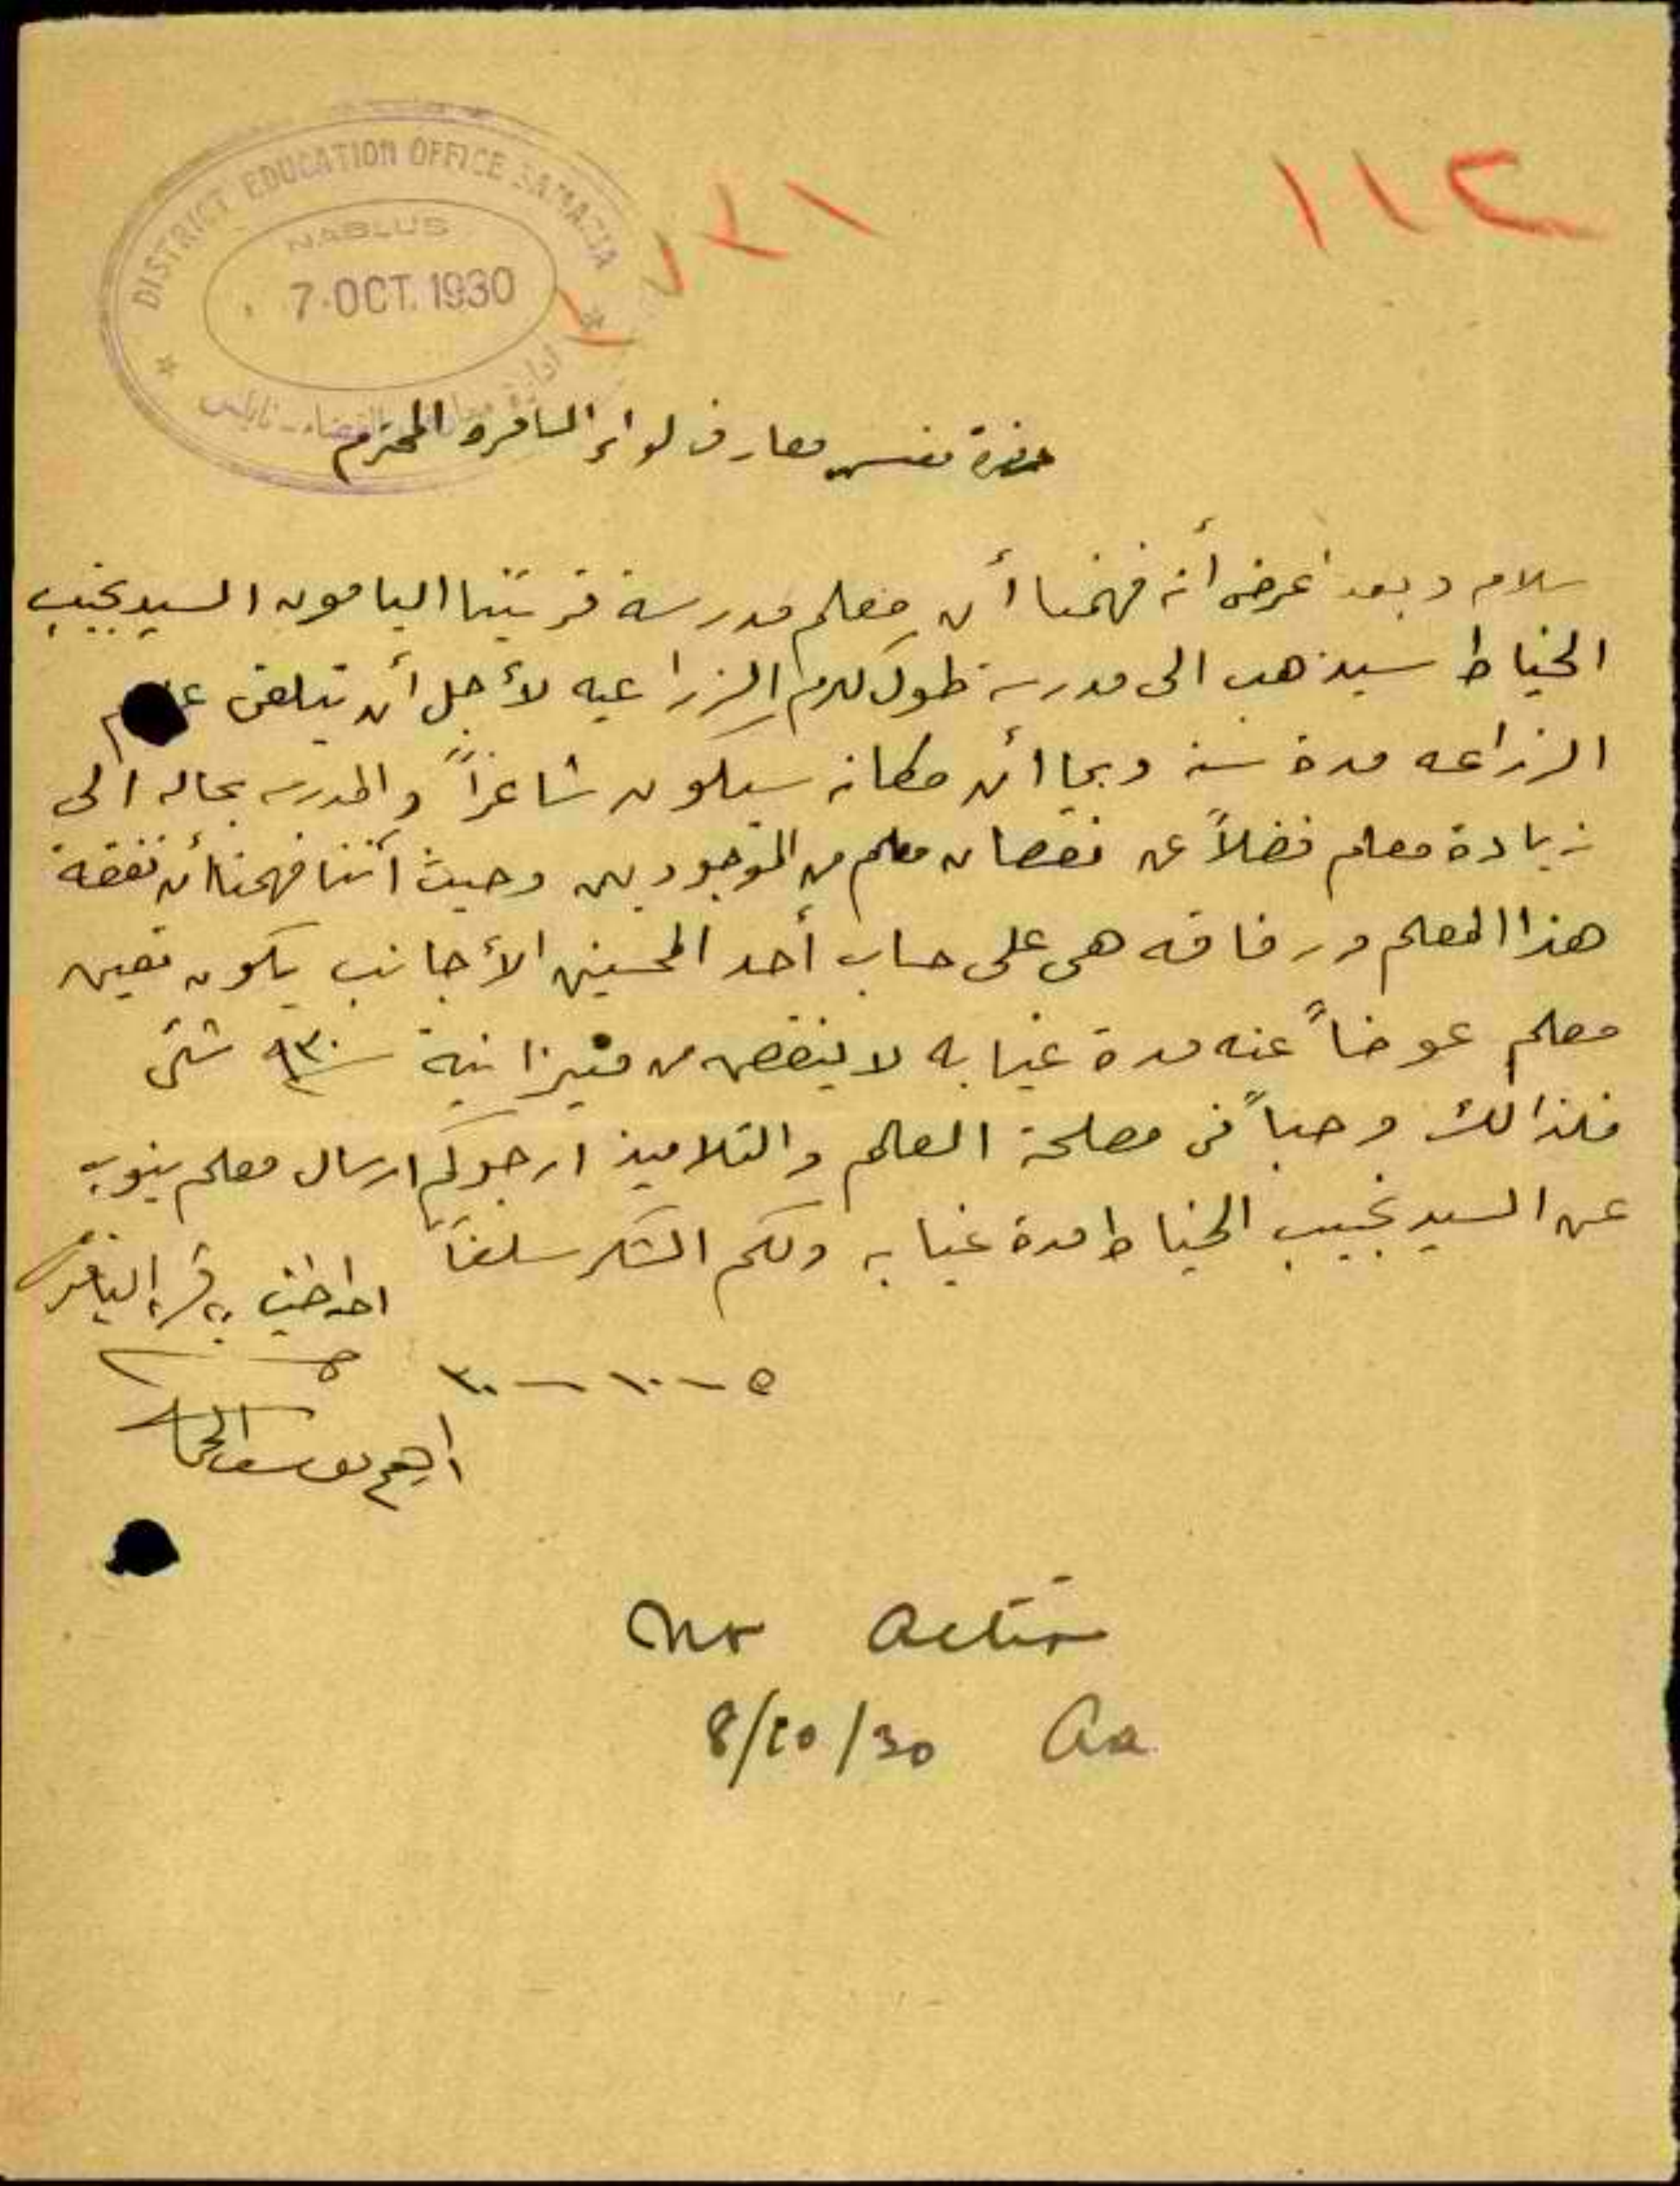 ١١٢
DISTRICT EDUCATION OFFICE SAMARIA
NABLUS
7 · OCT. 1930
حضرة مفتش معارف لواء السامره المحترم
سلام وبعد أعرض أنه فهمنا أن معلم مدرسة قريتنا اليامون السيد نجيب
الخياط سيذهب الى مدرسة طولكرم الزراعيه لأجل أن يتلقى علم
الزراعه مدة سنة وبما أن مكانه سيكون شاغراً والمدرسه بحاله الى
زيادة معلم فضلاً عن نقصان معلم من الموجودين وحيث أننا فهمنا أن نفقة
هذا المعلم ورفاقه هي على حساب أحد المحسنين الأجانب يكون تعيين
معلم عوضاً عنه مدة غيابه لا ينقص من ميزانية ٩٣٠ شئ
فلذالك وحباً في مصلحة العلم والتلاميذ ارجوكم ارسال معلم ينوب
عن السيد نجيب الخياط مدة غيابه ولكم الشكر سلفاً
قرية اليامون
٥ - ١٠ - ٣٠
No action
8/10/30 Aa